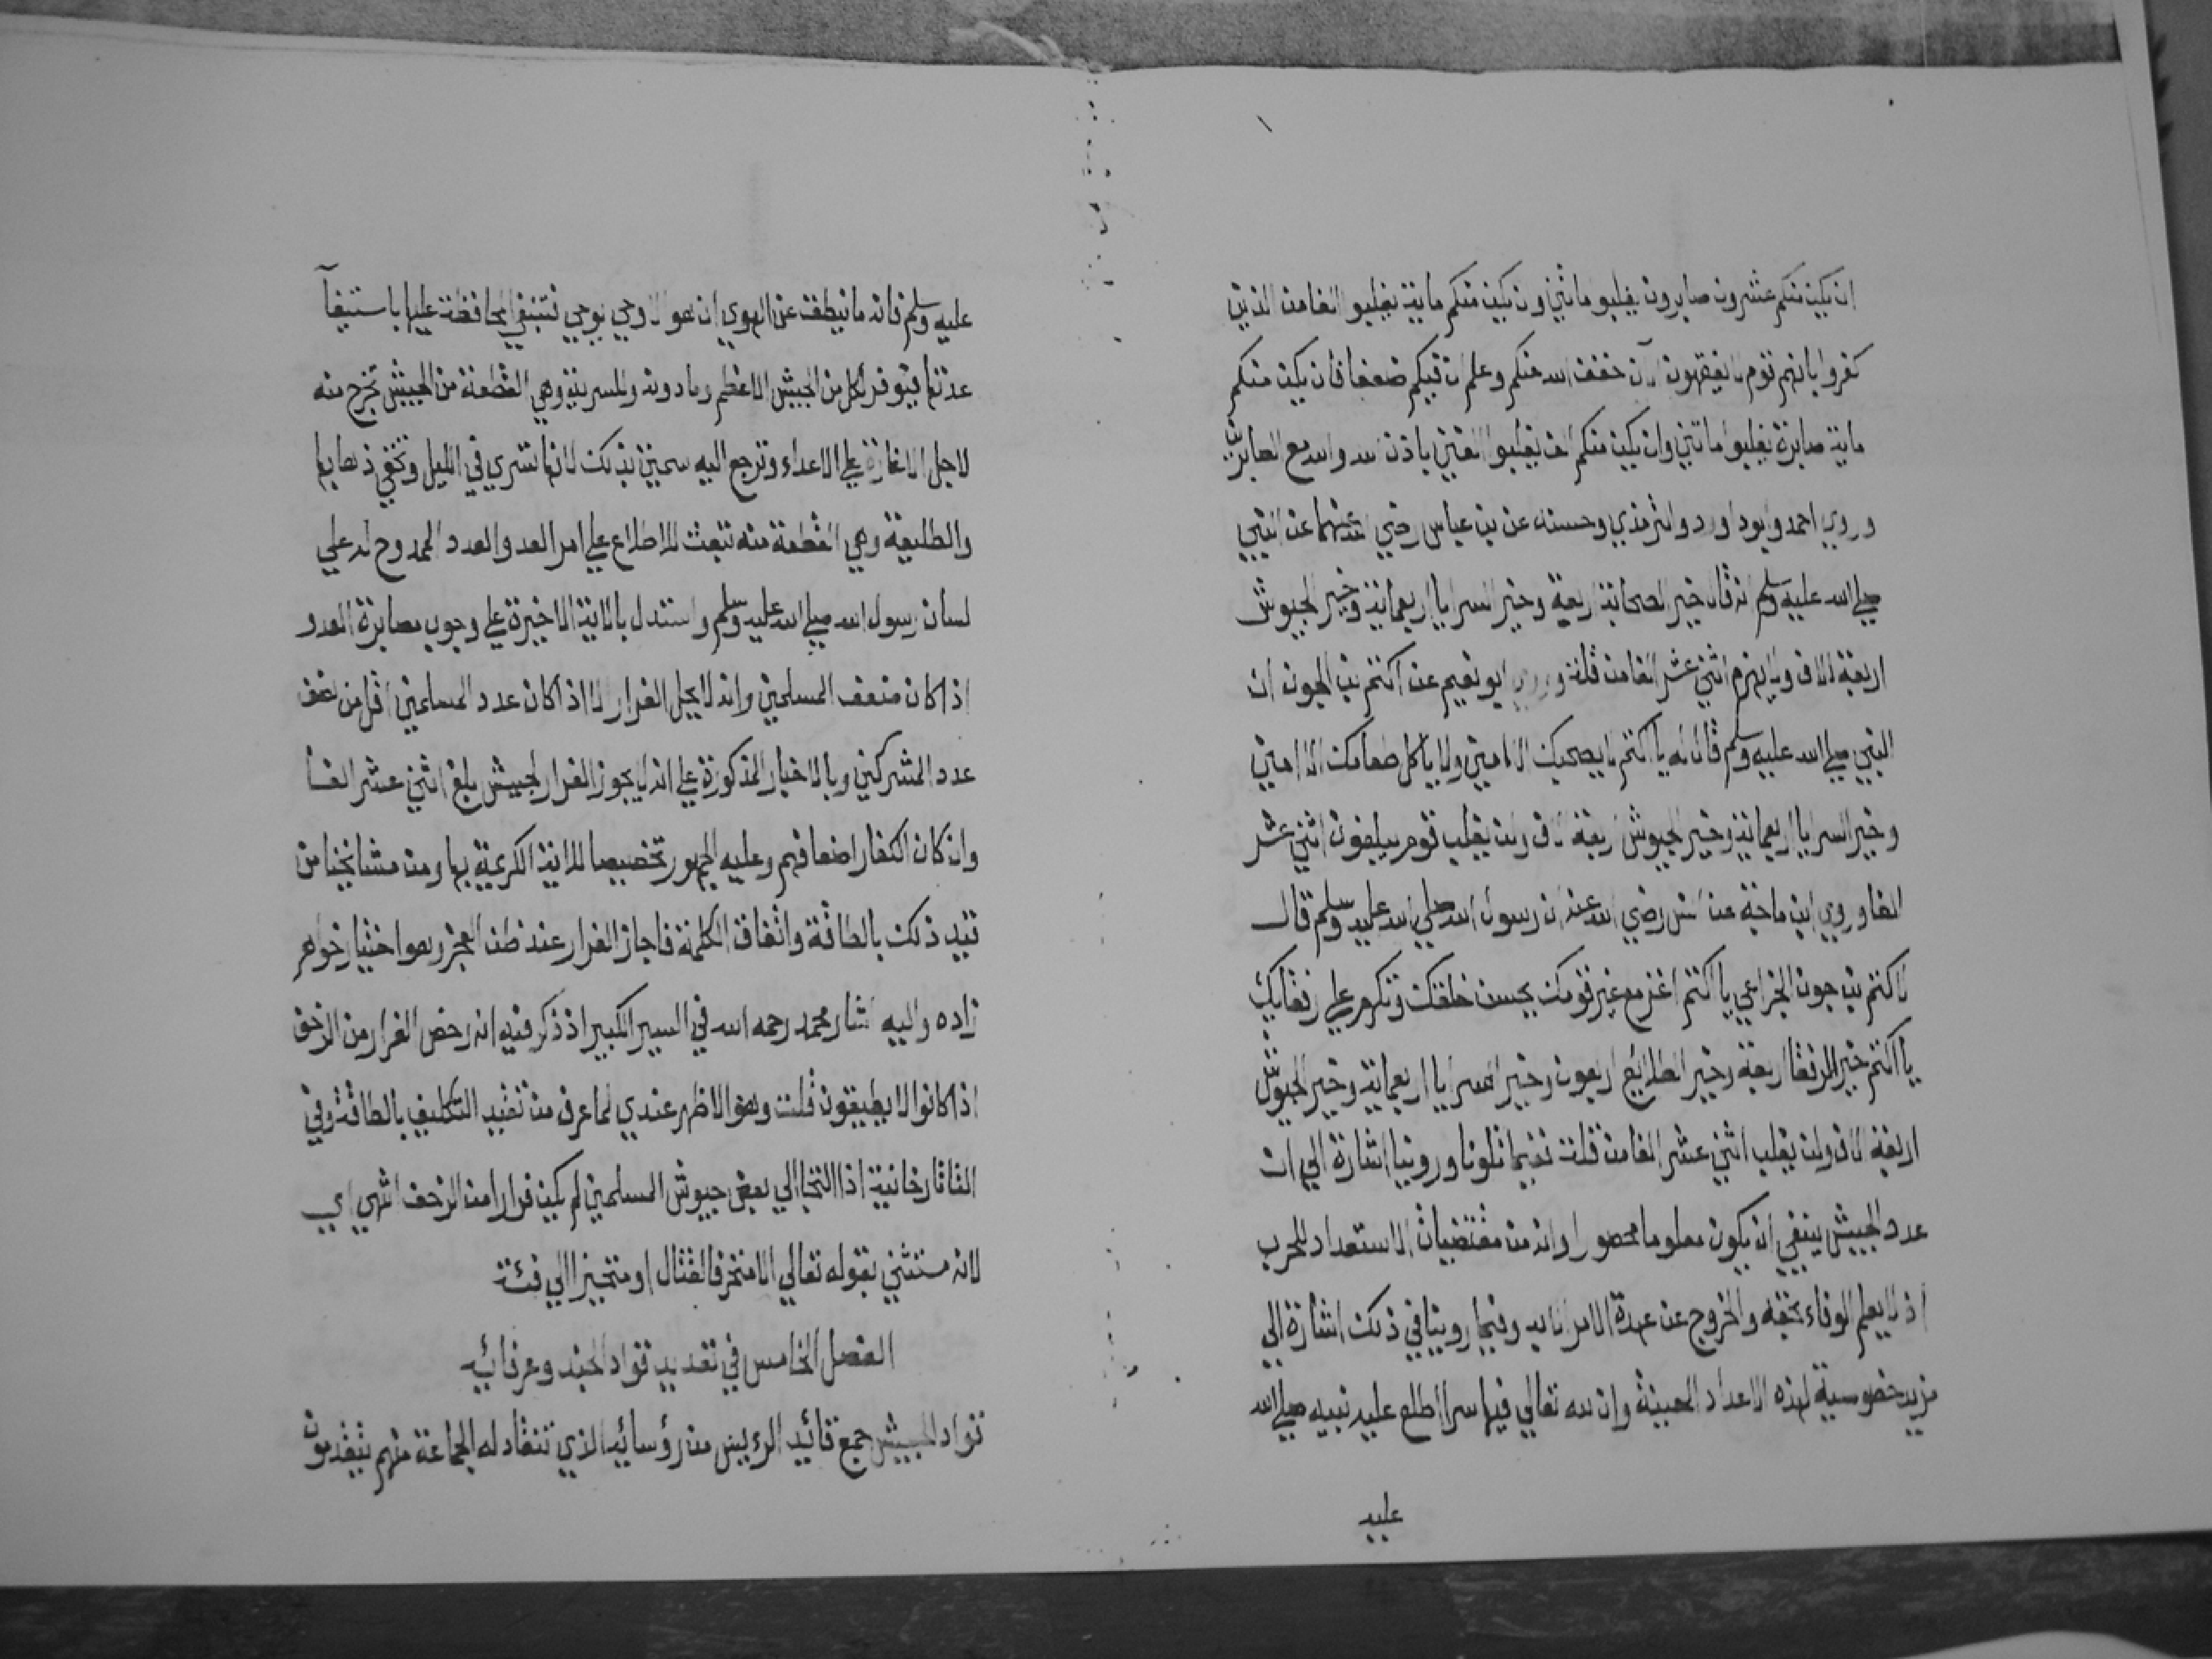 ان يكن منكم عشرون صابرون يغلبوا مائتين وان يكن منكم ماية يغلبوا الفا من الذين
كفروا بانهم قوم لا يفقهون الآن خفف الله عنكم وعلم ان فيكم ضعفا فان يكن منكم
ماية صابرة يغلبوا مائتين وان يكن منكم الف يغلبوا الفين باذن الله والله مع الصابرين
وروي احمد وابوداورد والترمذي وحسنه عن بن عباس رضي الله عنهما عن النبي
صلي الله عليه وسلم انه قال خير الصحابة اربعة وخير السرايا اربعماية وخير الجيوش
اربعة الاف ولا يهزم اثني عشر الفا من قلة وروي ابو نعيم عن اكتم بن الجون ان
النبي صلي الله عليه وسلم قال له يا اكتم لا يصحبك الا امين ولا ياكل طعامك الا امين
وخير السرايا اربعماية وخير الجيوش اربعة الاف ولن يغلب قوم يبلغون اثني عشر
الفا وروي ابن ماجة عن انس رضي الله عنه ان رسول الله صلي الله عليه وسلم قال
لاكتم بن جون الخزاعي يا اكتم اغز مع غير قومك يحسن خلقك وتكرم علي رفقايك
يا اكتم خير الرفقا اربعة وخير الطلايع اربعون وخير السرايا اربعماية وخير الجيوش
اربعة الاف ولن يغلب اثني عشر الفا من قلة ففيما تلونا وروينا اشارة الي ان
عدد الجيش ينبغي ان يكون معلوما محصورا وانه من مقتضيات الاستعداد للحرب
اذ لا يعلم الوفاء بحقه والخروج عن عهدة الامر الا به وفيما روينا في ذلك اشارة الي
مزيد خصوسية لهذه الاعداد المعينة وان لله تعالي فيها سرا اطلع عليه نبيه صلي الله
عليه
عليه وسلم فانه ما ينطق عن الهوي ان هو الا وحي يوحي فتبنغي المحافظة عليها باستيفآ
عدتها فيتوفر لكل من الجيش الاعظم وما دونه والسرية وهي القطعة من الجيش تخرج منه
لاجل الاغارة علي الاعداء وترجع اليه سميت بذلك لانها تسري في الليل وتخفي ذهابها
والطليعة وهي القطعة منه تبعث للاطلاع علي امر العدو العدد الممدوح له علي
لسان رسول الله صلي الله عليه وسلم واستدل بالاية الاخيرة علي وجوب مصابرة العدو
اذا كان ضعف المسلمين وانه لا يحل الفرار الا اذا كان عدد المسلمين اقل من نصف
عدد المشركين وبالاخبار المذكورة علي انه لا يجوز الفرار لجيش بلغ اثني عشر الفا
وان كان الكفار اضعافهم وعليه الجمهور تخصيصا للاية الكريمة بها ومن مشائخنا من
قيد ذلك بالطاقة واتفاق الكلمة فاجاز الفرار عند ظن العجز وهو اختيار خواهر
زاده واليه اشار محمد رحمه الله في السير الكبير اذ ذكر فيه انه رخص الفرار من الزحف
اذا كانوا لا يطيقون قلت وهو الاظهر عندي لما عرف من تقييد التكليف بالطاقة وفي
التاتارخانية اذا التجا الي بعض جيوش المسلمين لم يكن فرارا من الزحف انتهي اي
لانه مستثني بقوله تعالي الا متحرفا لقتال او متحيزا الي فئة
الفصل الخامس في تعديد قواد الجند وعرفائيه
قواد الجيش جمع قائيد الرءيس من رؤسائيه الذي تنقاد له الجماعة منهم يتقدمون